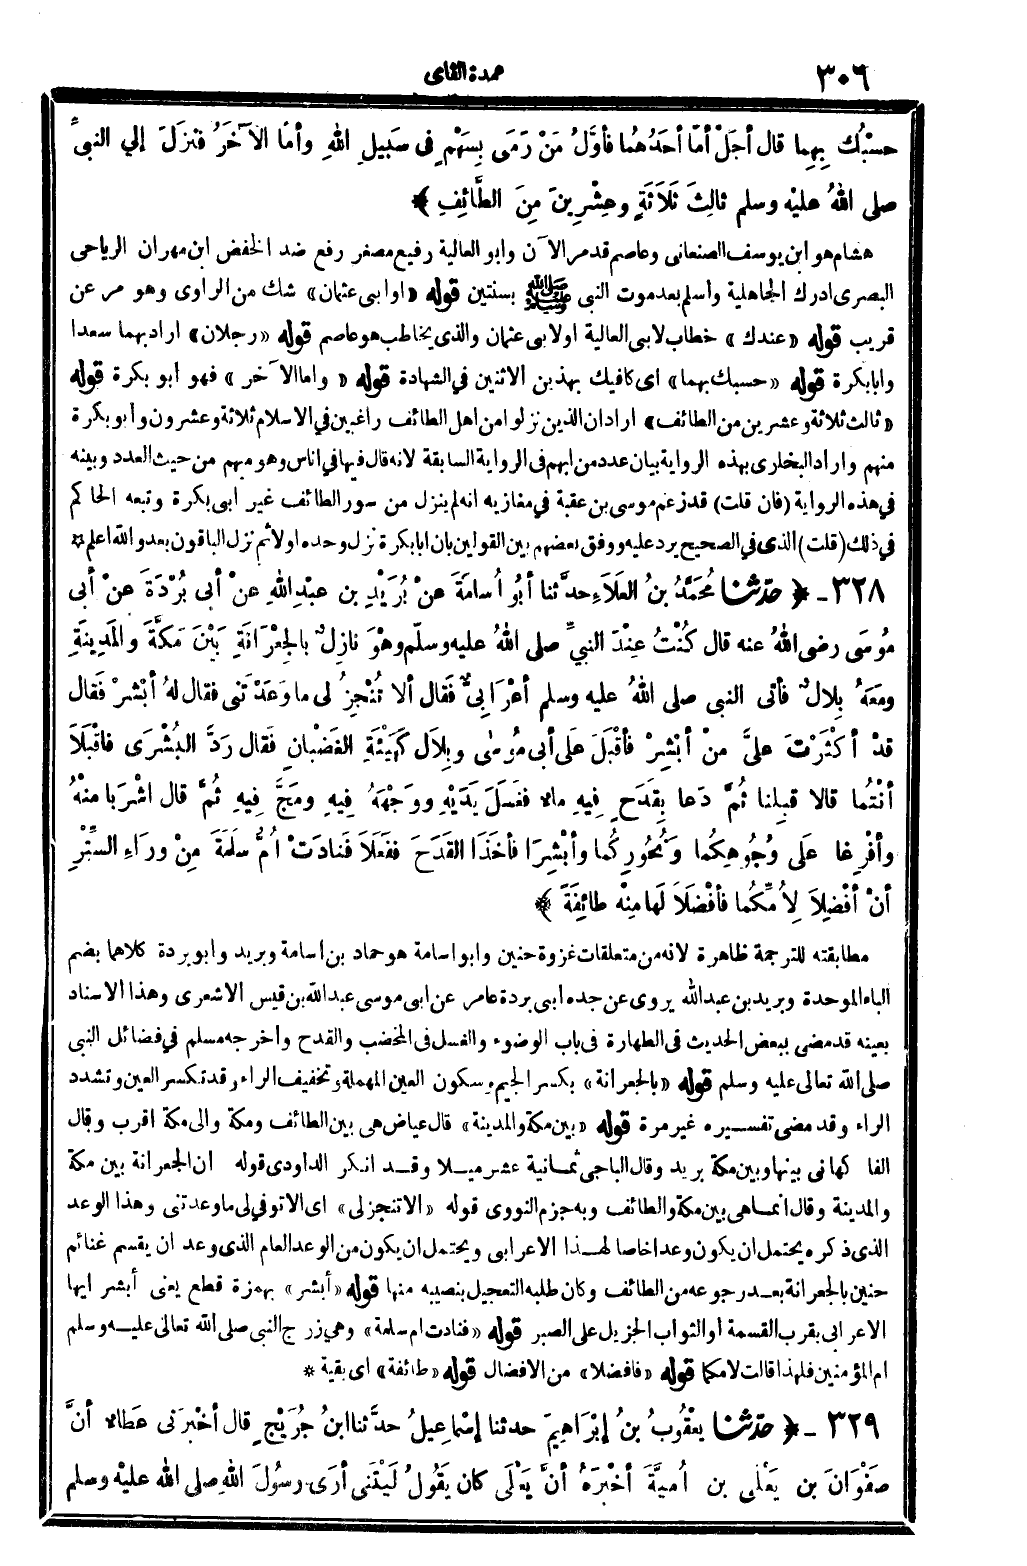 ٣٠٦
عمدة القاري
حَسْبُكَ بِهِمَا قال أجَلْ أمَّا أحَدُهُما فأوَّلُ مَنْ رَمَى بِسَهْمٍ فى سَبِيلِ اللهِ وأمَّا الآخَرُ فنَزَلَ إلي النبيِّ
صلى اللهُ عليْه وسلم ثالِثَ ثَلَاثَةٍ وعِشْرِينَ مِنَ الطَّائِفِ ﴾
هشام هو ابن يوسف الصنعانى وعاصم قد مر الآن وابو العالية رفيع مصغر رفع ضد الخفض ابن مهران الرياحى
البصرى ادرك الجاهلية وأسلم بعد موت النبى ﷺ بسنتين قوله «او ابى عثمان» شك من الراوى وهو مر عن
قريب قوله «عندك» خطاب لابى العالية او لابى عثمان والذى يخاطب هو عاصم قوله «رجلان» اراد بهما سعدا
وابا بكرة قوله «حسبك بهما» اى كافيك بهذين الاثنين في الشهادة قوله «واما الآخر» فهو أبو بكرة قوله
«ثالث ثلاثة وعشرين من الطائف» اراد ان الذين نزلوا من اهل الطائف راغبين في الاسلام ثلاثة وعشرون وأبو بكرة
منهم واراد البخارى بهذه الرواية بيان عدد من ابهم فى الرواية السابقة لانه قال فيها في اناس وهو مبهم من حيث العدد وبينه
في هذه الرواية (فان قلت) قد زعم موسى بن عقبة في مغازيه انه لم ينزل من سور الطائف غير ابى بكرة وتبعه الحاكم
في ذلك (قلت) الذى في الصحيح يرد عليه ووفق بعضهم بين القولين بان ابا بكرة نزل وحده اولا ثم نزل الباقون بعد والله اعلم *
٣٢٨ - ﴿ حدّثنا مُحَمَّدُ بنُ العَلَاءِ حدَّثنا أبُو أُسامَةَ عنْ بُرَيْدِ بن عبْدِ اللهِ عنْ أبى بُرْدَةَ عنْ أبى
مُوسَى رضى اللهُ عنه قال كُنْتُ عِنْدَ النبيِّ صلى اللهُ عليه وسلّم وهْوَ نازِلٌ بالجِعْرَانَةِ بَيْنَ مَكَّةَ والمَدِينَةِ
ومَعَهُ بِلالٌ فأتى النبي صلى اللهُ عليه وسلم أعْرَابِيٌّ فَقال ألا تُنْجِزُ لى ما وعَدْتَنى فقال لهُ أبْشِرْ فَقال
قدْ أكْثَرْتَ عليَّ منْ أبْشِرْ فأقْبَلَ عَلَى أبى مُوسَى وبِلاَل كَهَيْئَةِ الغَضْبانِ فَقال رَدَّ البُشْرَى فاقْبَلاَ
أنْتُما قالا قبِلنا ثُمَّ دَعا بِقَدَحٍ فِيهِ ماء فغسَلَ يَدَيْهِ ووَجْهَهُ فِيهِ ومَجَّ فِيهِ ثُمَّ قال اشْرَبا منْهُ
وأفْرِغا عَلَى وُجُوهِكُما ونُحُورِكُما وأبْشِرَا فأخَذَا القَدَحَ ففَعَلَا فَنادَتْ أُمُّ سلَمَةَ مِنْ وراءِ السِّتْرِ
أنْ أفْضِلاَ لِأُمِّكُما فأفْضَلاَ لَها مِنْه طائِفَةً ﴾
مطابقته للترجمة ظاهرة لانه من متعلقات غزوة حنين وابو اسامة هو حماد بن أسامة وبريد وابو بردة كلاهما بضم
الباء الموحدة وبريد بن عبد الله يروى عن جده ابى بردة عامر عن ابى موسى عبد الله بن قيس الاشعرى وهذا الاسناد
بعينه قد مضى ببعض الحديث فى الطهارة فى باب الوضوء والغسل فى المخضب والقدح واخرجه مسلم في فضائل النبى
صلى الله تعالى عليه وسلم قوله «بالجعرانة» بكسر الجيم وسكون العين المهملة وتخفيف الراء وقد تكسر العين وتشدد
الراء وقد مضى تفسيره غير مرة قوله «بين مكة والمدينة» قال عياض هى بين الطائف ومكة والى مكة اقرب وقال
الفاكهانى بينها وبين مكة بريد وقال الباجى ثمانية عشر ميلا وقد انكر الداودى قوله ان الجعرانة بين مكة
والمدينة وقال انما هى بين مكة والطائف وبه جزم النووى قوله «الا تنجز لى» اى الا توفي لى ما وعدتنى وهذا الوعد
الذى ذكره يحتمل ان يكون وعدا خاصا لهذا الاعرابى ويحتمل ان يكون من الوعد العام الذى وعد ان يقسم غنائم
حنين بالجعرانة بعد رجوعه من الطائف وكان طلبه التعجيل بنصيبه منها قوله «أبشر» بهمزة قطع يعنى أبشر ايها
الاعرابى بقرب القسمة أو الثواب الجزيل على الصبر قوله «فنادت ام سلمة» وهى زوج النبى صلى الله تعالى عليه وسلم
ام المؤمنين فلهذا قالت لامكما قوله «فافضلا» من الافضال قوله «طائفة» اى بقية *
٣٢٩ - ﴿ حدّثنا يعْقُوبُ بنُ إبْرَاهِيمَ حدثنا إسْماعِيلُ حدَّثنا ابنُ جُرَيْجٍ قال أخْبَرَنى عَطاءٌ أنَّ
صَفْوَانَ بن يَعْلَى بن أُميَّةَ أخْبَرَهُ أنَّ يَعْلَى كان يَقُولُ لَيْتَنى أرَى رسُولَ اللهِ صلى الله عليْه وسلم